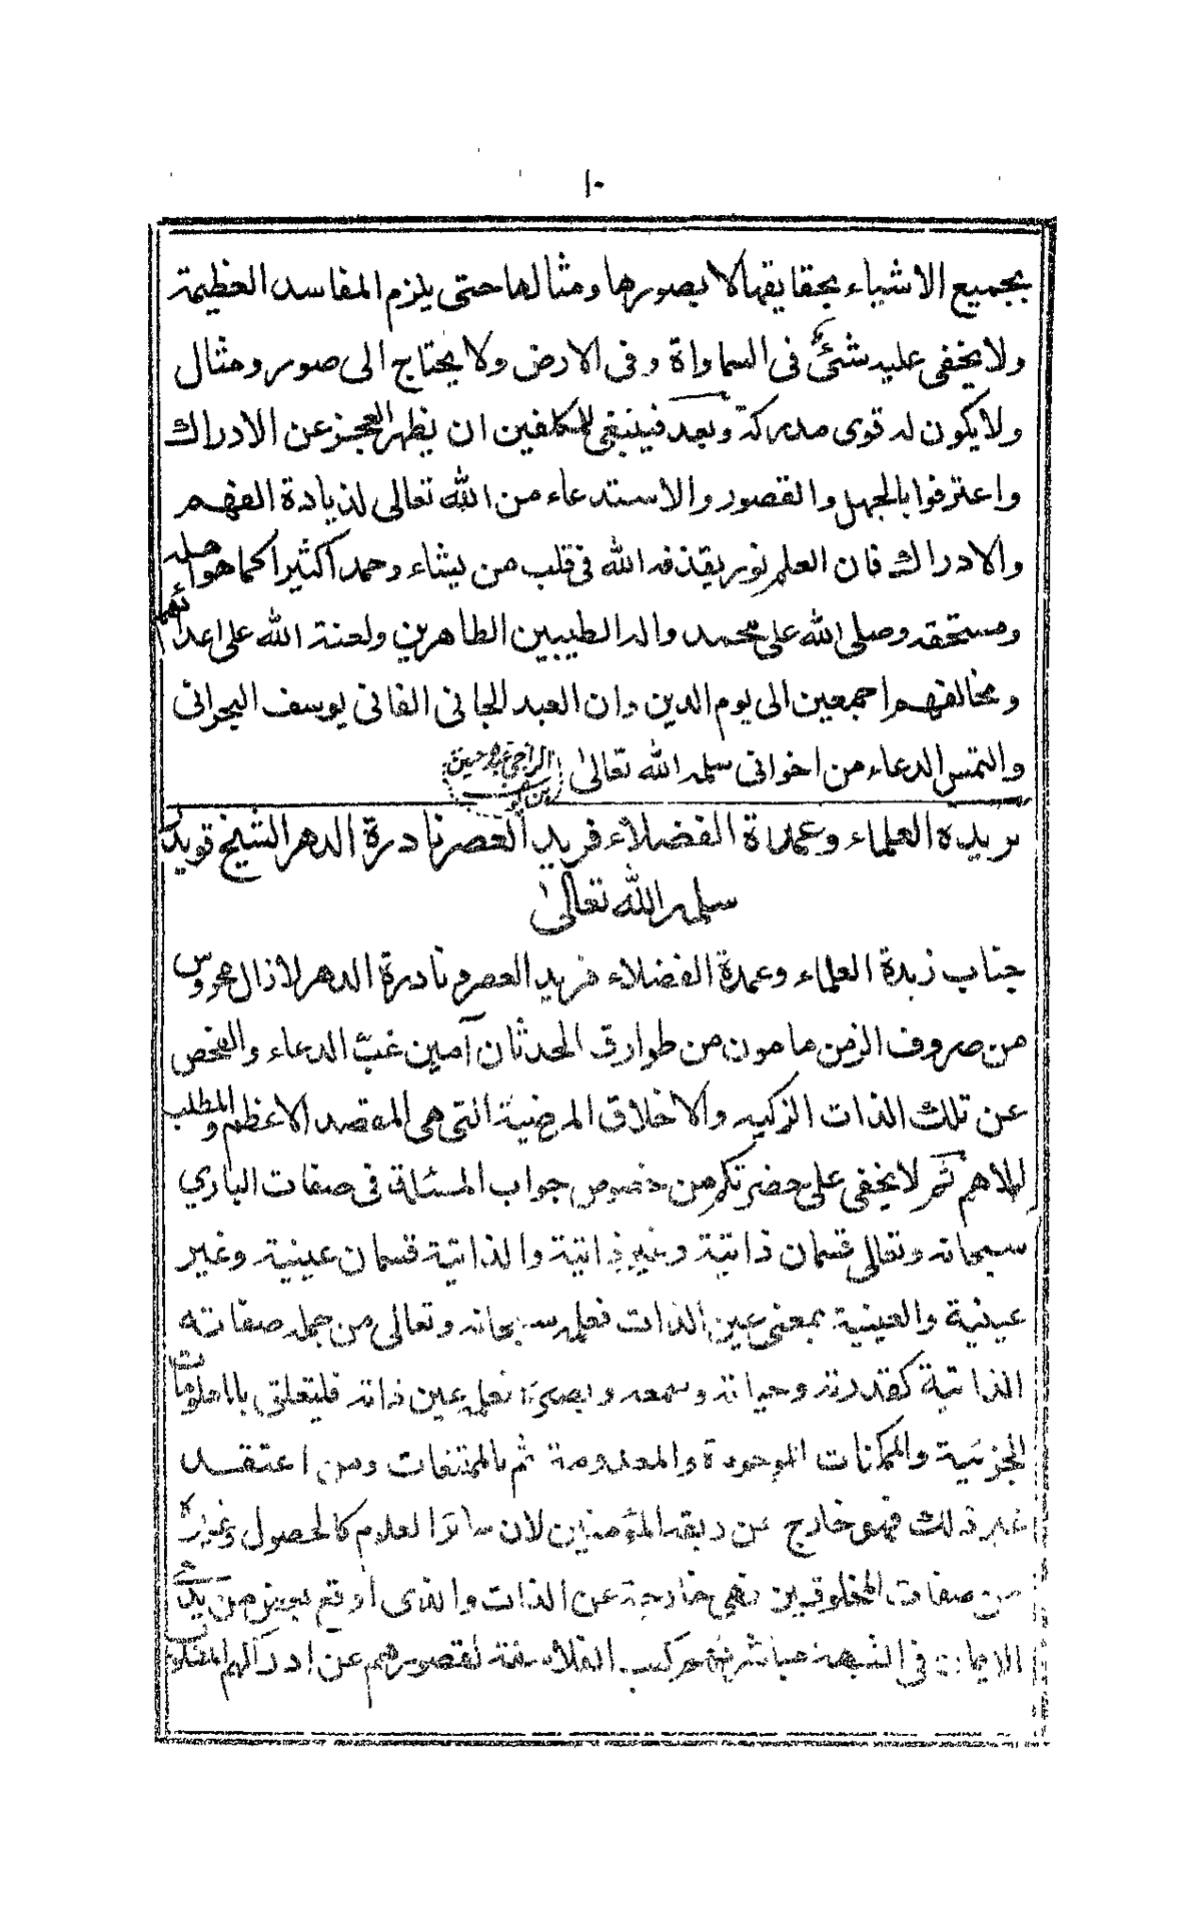 ١٠
بجميع الاشياء بحقايقها لا بصورها ومثالها حتى يلزم المفاسد العظيمة
ولا يخفى عليه شئ في السماواة وفى الارض ولا يحتاج الى صور ومثال
ولا يكون له قوى مدركة وبعد فينبغى للمكلفين ان يظهر العجز عن الادراك
واعترفوا بالجهل والقصور والاستدعاء من الله تعالى لزيادة الفهم
والادراك فان العلم نور يقذفه الله فى قلب من يشاء وحمدا كثيرا كما هو اهله
ومستحقه وصلى الله على محمد واله الطيبين الطاهرين ولعنة الله على اعدائهم
ومخالفهم اجمعين الى يوم الدين وان العبد الجانى الفانى يوسف البحرانى
والتمس الدعاء من اخوانى سلمه الله تعالى الراجى
بريدة العلماء وعمداة الفضلاء فريد العصر نادرة الدهر الشيخ
سلمه الله تعالى
جناب زبدة العلماء وعمدة الفضلاء فريد العصر ونادرة الدهر لا زال محروس
من صروف الزمن مامون من طوارق الحدثان آمين غبّ الدعاء والفحص
عن تلك الذات الزكيه والاخلاق المرضية التى هى المقصد الاعظم والمطلب
الاهم ثم لا يخفى على حضرتكم من خصوص جواب المسئلة فى صفات الباري
سبحانه وتعالى قسمان ذاتية وغير ذاتية والذاتية قسمان عينية وغير
عينية والعينية بمعنى عين الذات فعلمه سبحانه وتعالى من جمله صفاته
الذاتية كقدرته وحياته وسمعه وبصره فعلمه عين ذاته فليتعلق بالمعلومات
الجزئية والممكنات الموجودة والمعدومة ثم بالممتنعات ومن اعتقد
غير ذلك فهو خارج عن ربقه المؤمنين لان سائر العلوم كالحصول وغيره
من صفات المخلوقين فهى خارجة عن الذات والذى اوقع
الايمان فى الشبهة الفلاسفة لقصورهم عن ادراكهم